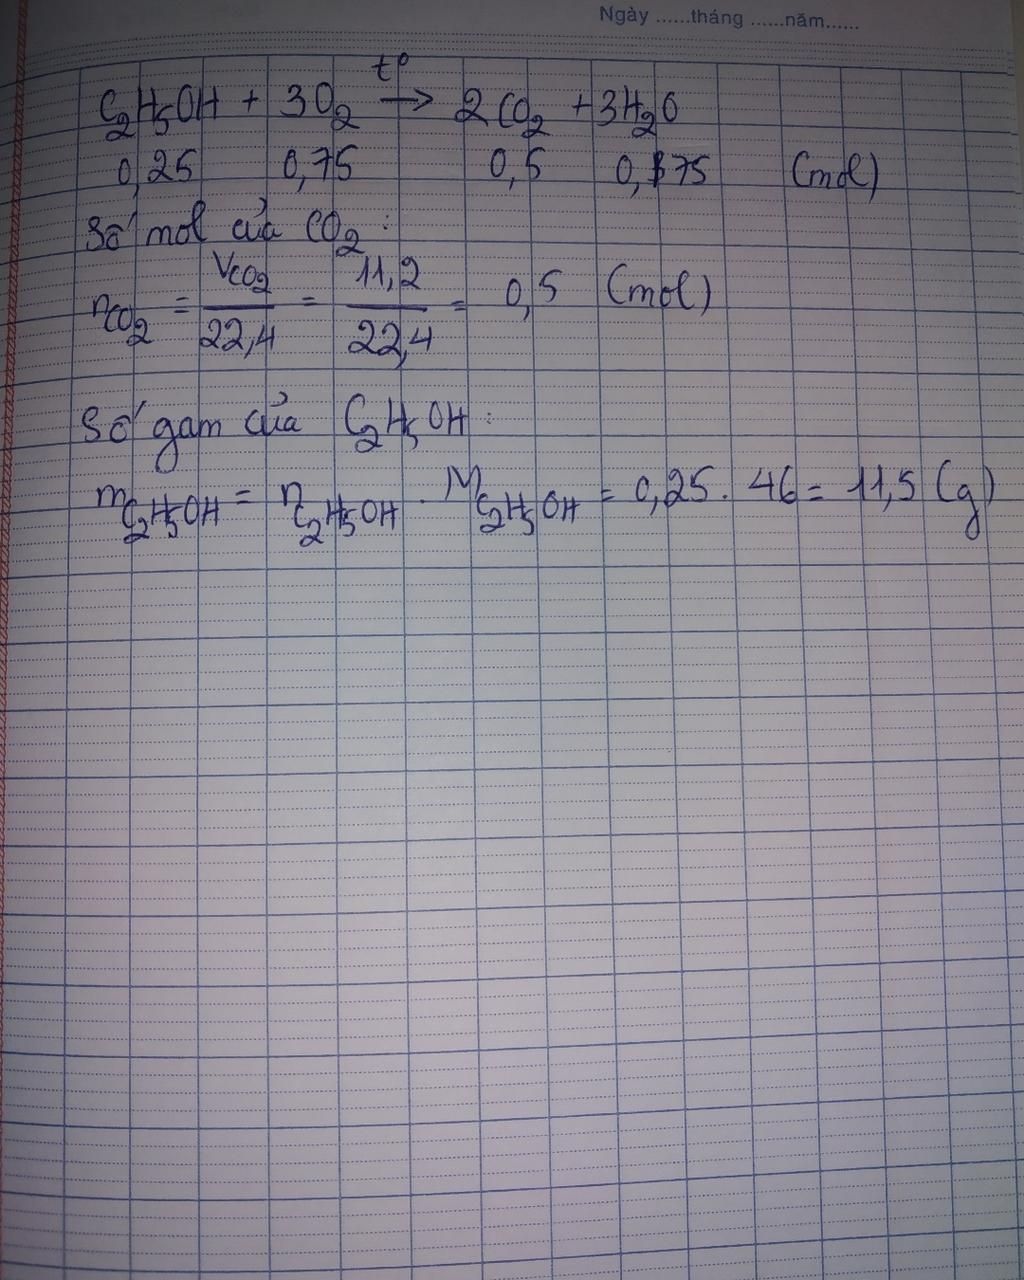 Ngày ......tháng ......năm......
t°
C₂H₅OH + 3O₂ → 2CO₂ + 3H₂O
0,25 0,75 0,5 0,75 (mol)
Số mol của CO₂ :
nCO₂ = VCO₂/22,4 = 11,2/22,4 = 0,5 (mol)
Số gam của C₂H₅OH :
mC₂H₅OH = nC₂H₅OH . MC₂H₅OH = 0,25 . 46 = 11,5 (g)